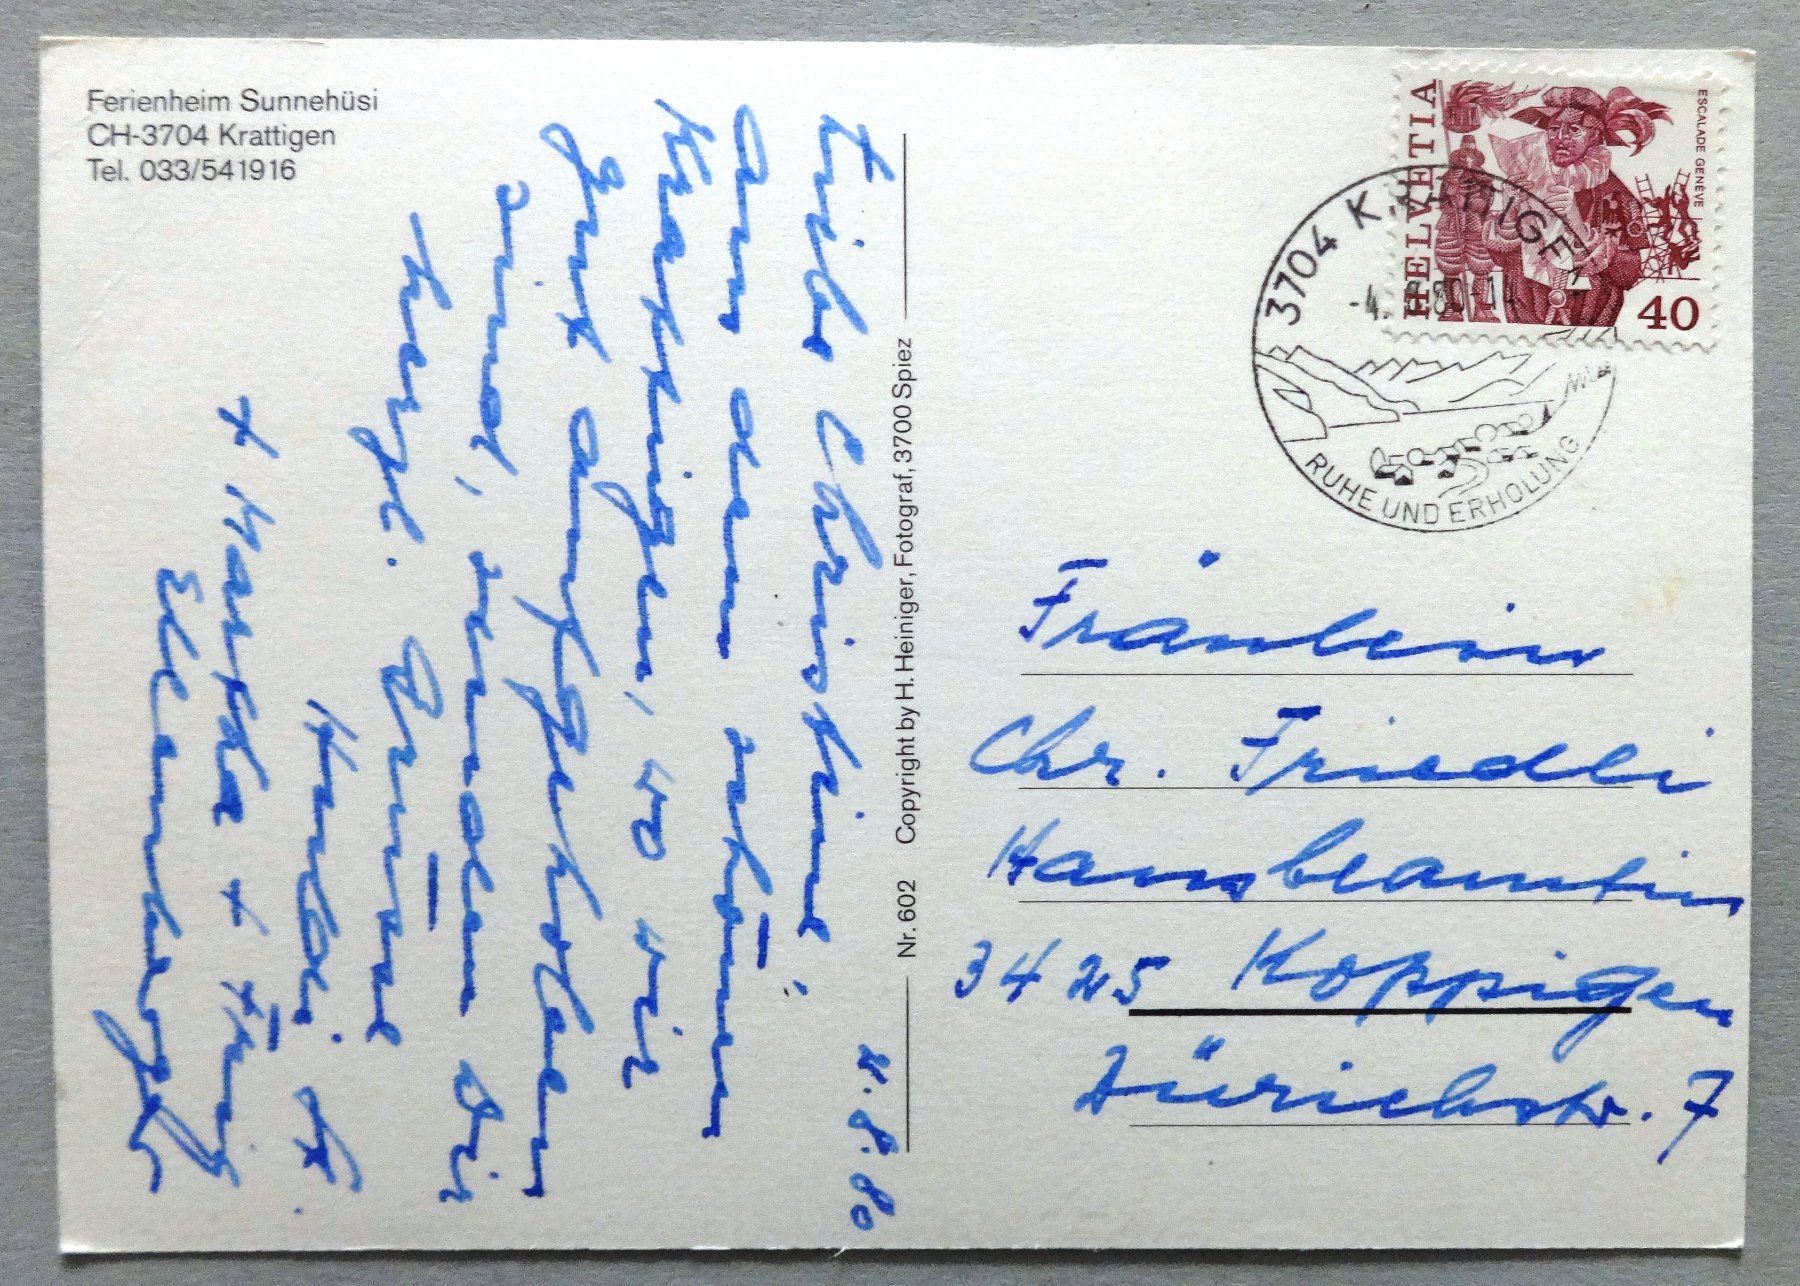 Ferienheim Sunnehüsi
CH-3704 Krattigen
Tel. 033/541916
4.8.80
Liebe Christine!
Aus dem schönen
Krattigen, wo wir
gut aufgehoben
sind, senden Dir
herzl. Grüsse
+ Martha +
Ellenberger
Nr. 602 Copyright by H. Heiniger, Fotograf, 3700 Spiez
HELVETIA
ESCALADE GENÈVE
40
3704 KRATTIGEN
-4. 8.80-14
RUHE UND ERHOLUNG
Fräulein
Chr. Friedli
Hausbeamtin
3425 Koppigen
Zürichstr. 7